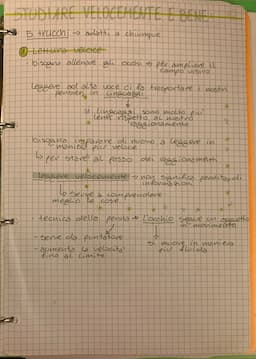 STUDIARE VELOCEMENTE E BENE
5 trucchi → adatti a chiunque
① Lettura veloce
bisogna allenare gli occhi → per ampliare il
campo visivo
leggere ad alta voce ci fa trasportare i nostri
pensieri in linguaggi
i linguaggi sono molto più
lenti rispetto al nostro
ragionamento
bisogna imparare di nuovo a leggere in
maniera più veloce
↳ per stare al passo dei ragionamenti
leggere velocemente → non significa perdita di
informazioni
↳ serve a comprendere
meglio le cose
- tecnica della penna → l'occhio segue un oggetto
in movimento
- serve da puntatore
si muove in maniera
più fluida
- aumenta la velocità
fino al limite